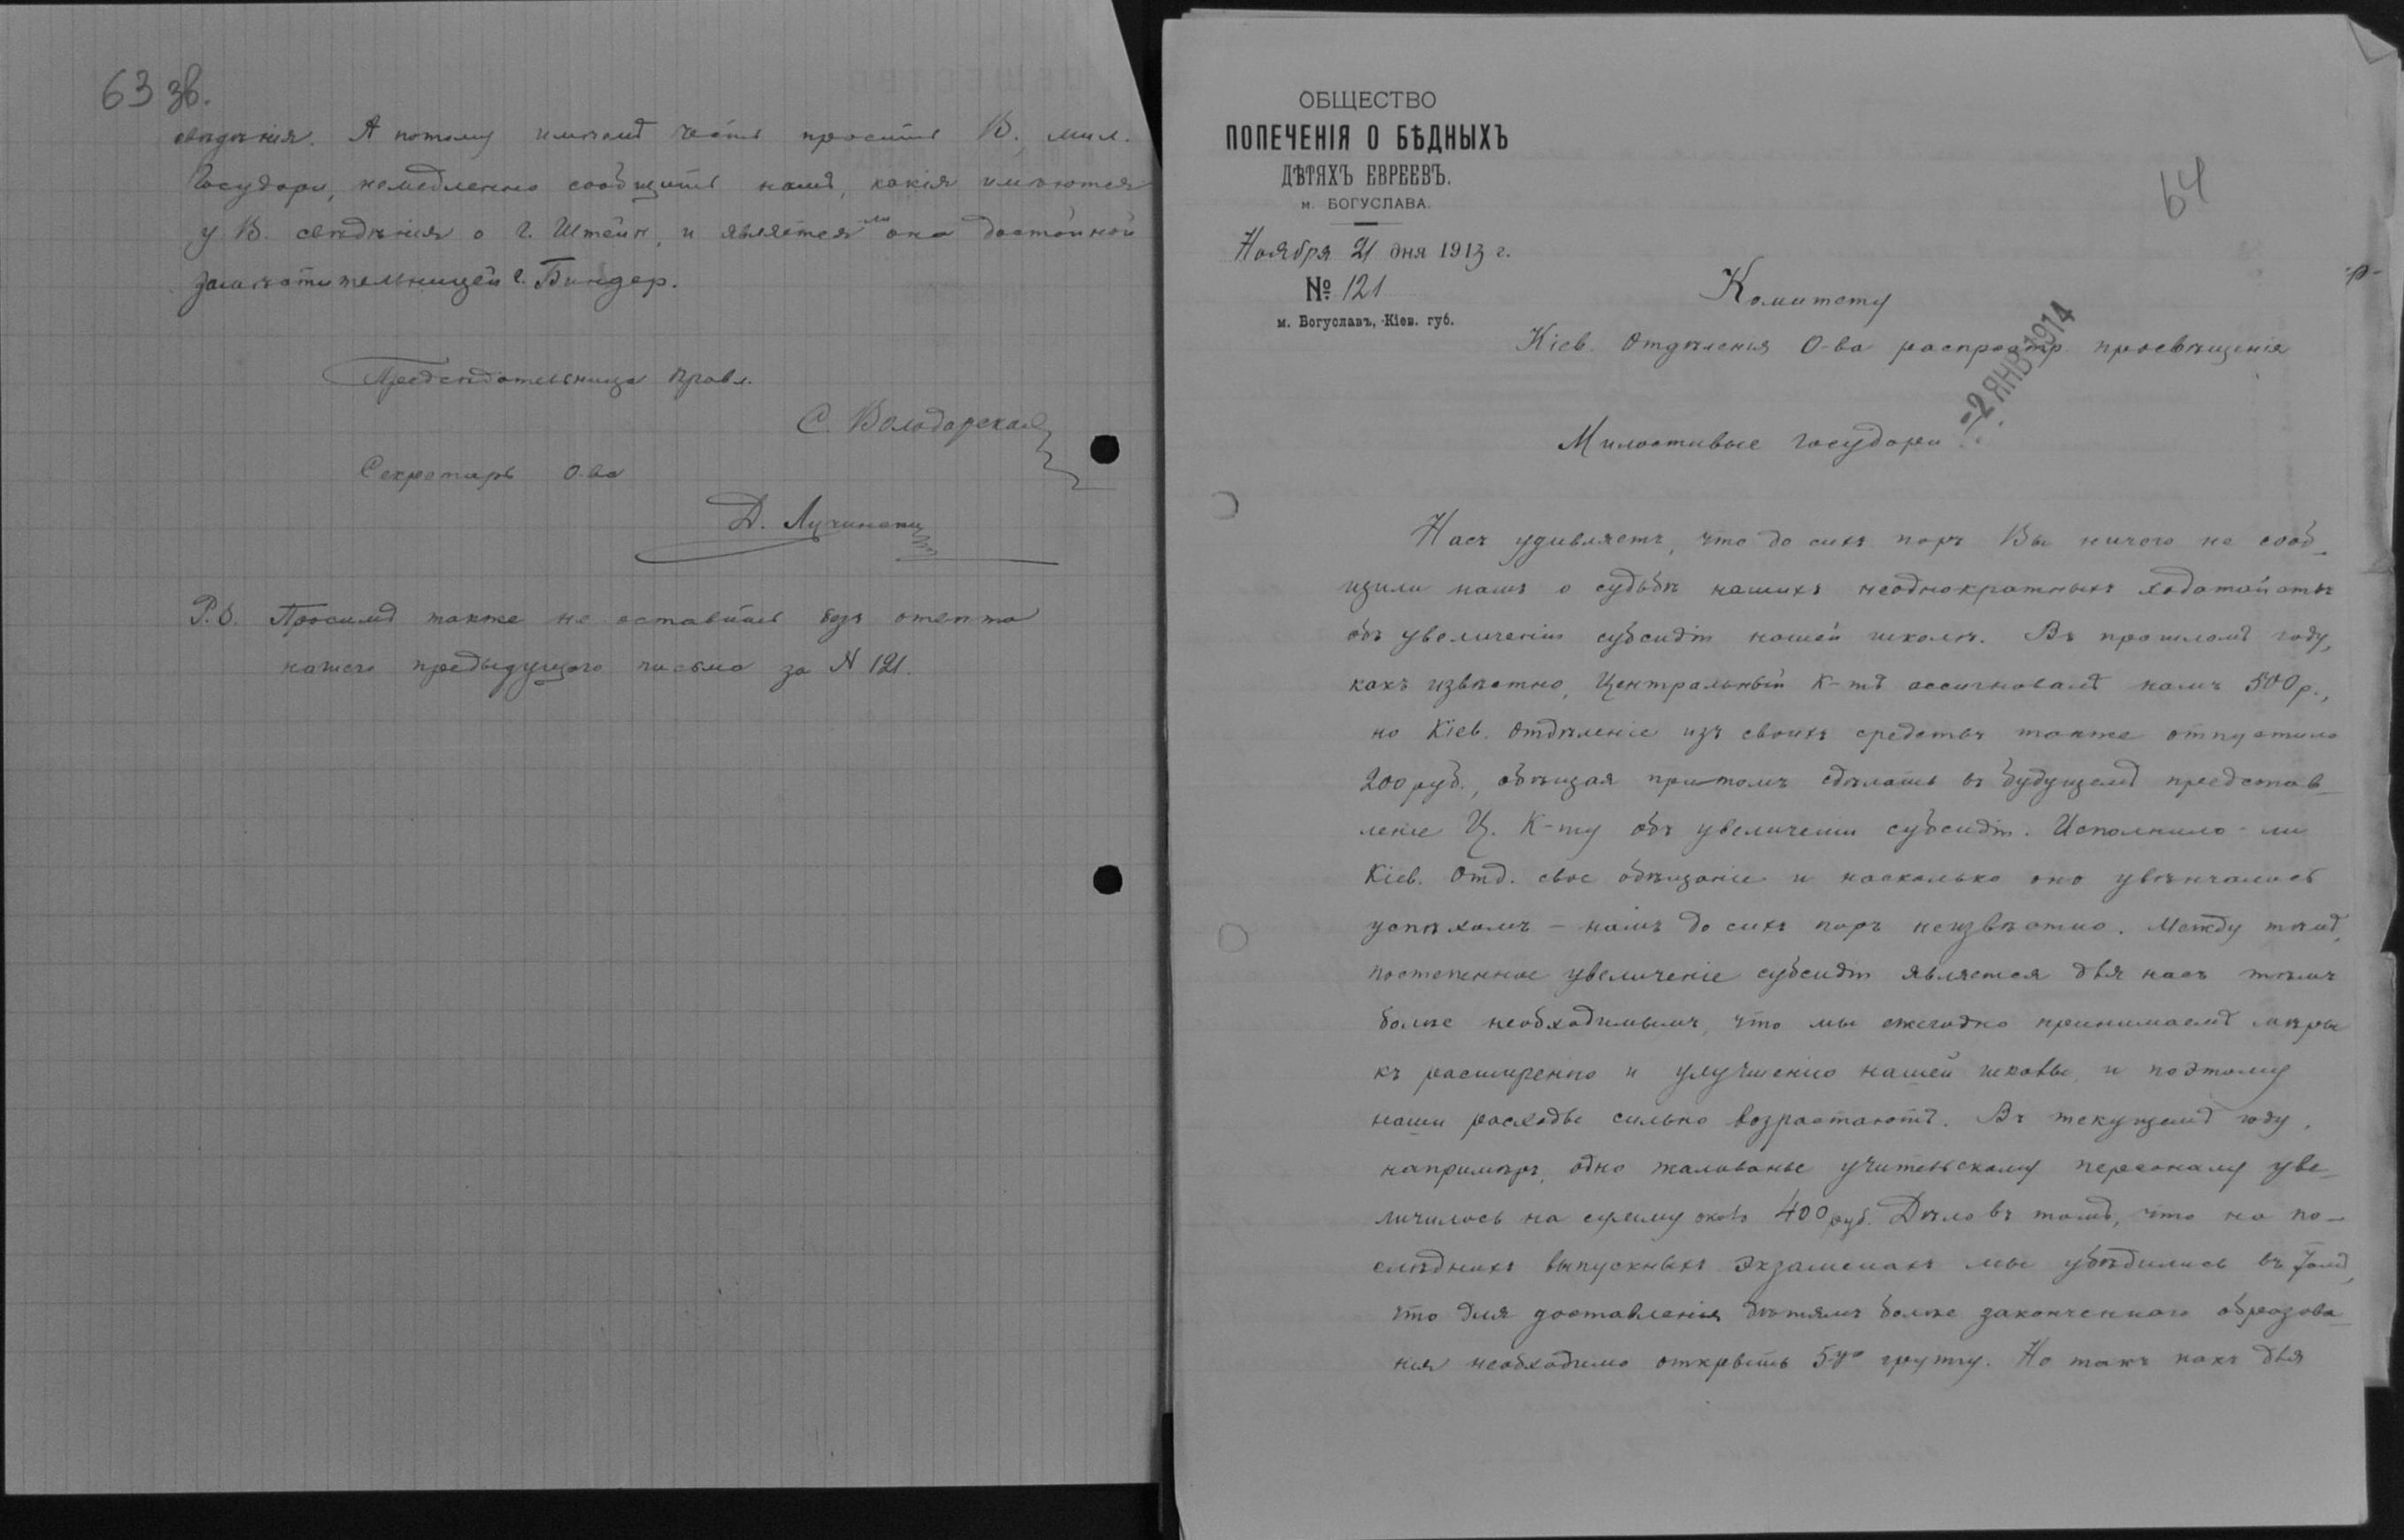 63 зв.
свѣдѣнія. А потому имѣемъ честь просить В. мил.
Государи, немедленно сообщить намъ, какія имѣются
у В. свѣдѣнія о г. Штейн, и является ли она достойной
заместительницей г. Биндер.
Предсѣдательница Правл.
С. Володарская
Секретарь О-ва
Д.
P.S. Просимъ также не оставить безъ отвѣта
нашего предыдущаго письма за N 121.
ОБЩЕСТВО
ПОПЕЧЕНІЯ О БѢДНЫХЪ
ДѢТЯХЪ ЕВРЕЕВЪ.
м. БОГУСЛАВА.
Ноября 21 дня 1913 г.
№ 121
м. Богуславъ, Кіев. губ.
64
Комитету
Кіев. Отдѣленія О-ва распростр. просвѣщенія
-2 ЯНВ 1914
Милостивые государи!
Насъ удивляетъ, что до сихъ поръ Вы ничего не сооб-
щили намъ о судьбѣ нашихъ неоднократныхъ ходатайствъ
объ увеличеніи субсидіи нашей школѣ. Въ прошломъ году,
какъ извѣстно, Центральный К-тъ ассигновалъ намъ 500 р.,
но Кіев. Отдѣленіе изъ своихъ средствъ также отпустило
200 руб., обѣщая притомъ сдѣлать въ будущемъ представ-
леніе Ц. К-ту объ увеличеніи субсидіи. Исполнило-ли
Кіев. Отд. свое обѣщаніе и насколько оно увѣнчалось
успѣхомъ – намъ до сихъ поръ неизвѣстно. Между тѣмъ,
постепенное увеличеніе субсидіи является для насъ тѣмъ
болѣе необходимымъ, что мы ежегодно принимаемъ мѣры
къ расширенію и улучшенію нашей школы, и поэтому
наши расходы сильно возрастаютъ. Въ текущемъ году,
напримѣръ, одно жалованье учительскому персоналу уве-
личилось на сумму около 400 руб. Дѣло въ томъ, что на по-
слѣднихъ выпускныхъ экзаменахъ мы убѣдились въ томъ,
что для доставленія дѣтямъ болѣе законченнаго образова-
нія необходимо открыть 5-ую группу. Но такъ какъ для